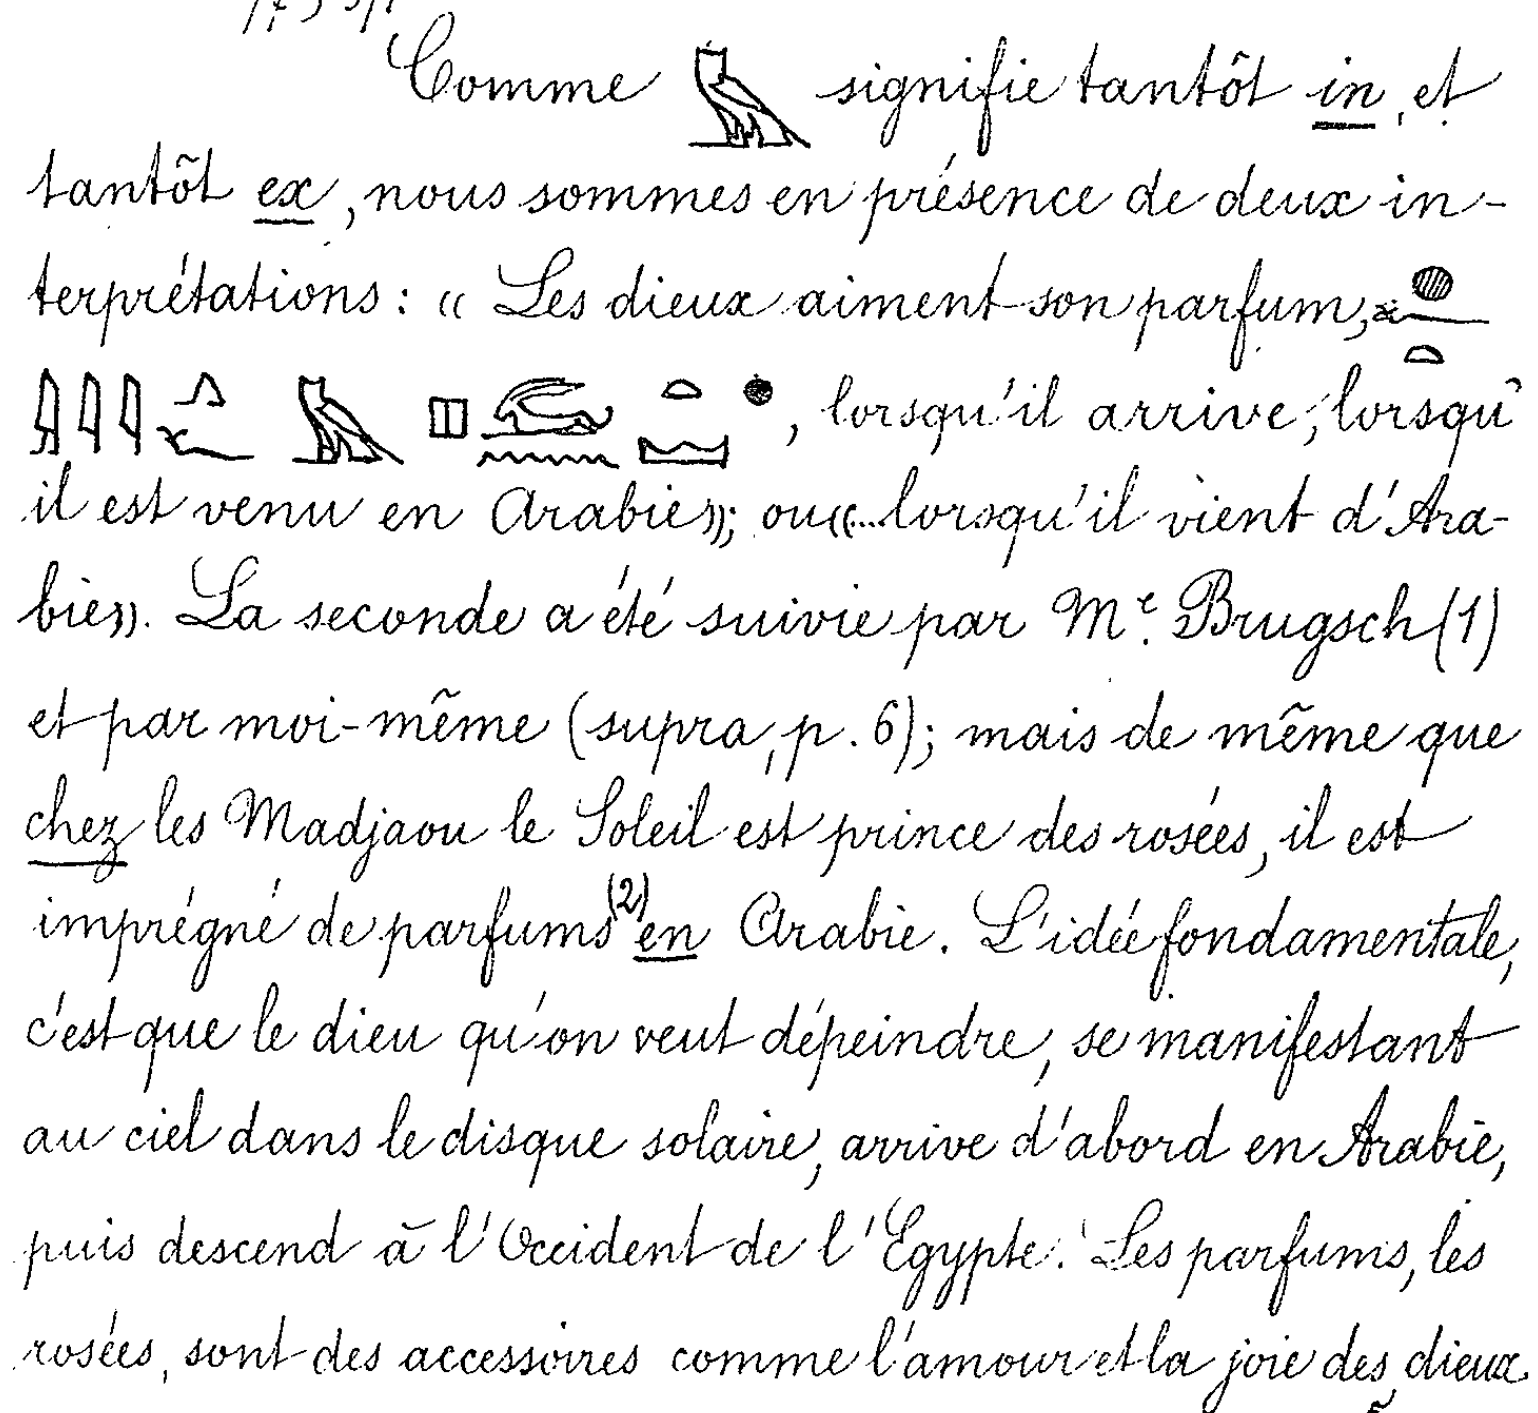 Comme 𓅓 signifie tantôt in, et
tantôt ex, nous sommes en présence de deux in-
terprétations : « Les dieux aiment son parfum,
, lorsqu'il arrive, lorsqu'
il est venu en Arabie»; ou «...lorsqu'il vient d'Ara-
bie». La seconde a été suivie par Mr. Brugsch (1)
et par moi-même (supra, p. 6); mais de même que
chez les Madjaou le Soleil est prince des rosées, il est
imprégné de parfums (2) en Arabie. L'idée fondamentale,
c'est que le dieu qu'on veut dépeindre, se manifestant
au ciel dans le disque solaire, arrive d'abord en Arabie,
puis descend à l'Occident de l'Egypte. Les parfums, les
rosées, sont des accessoires comme l'amour et la joie des dieux